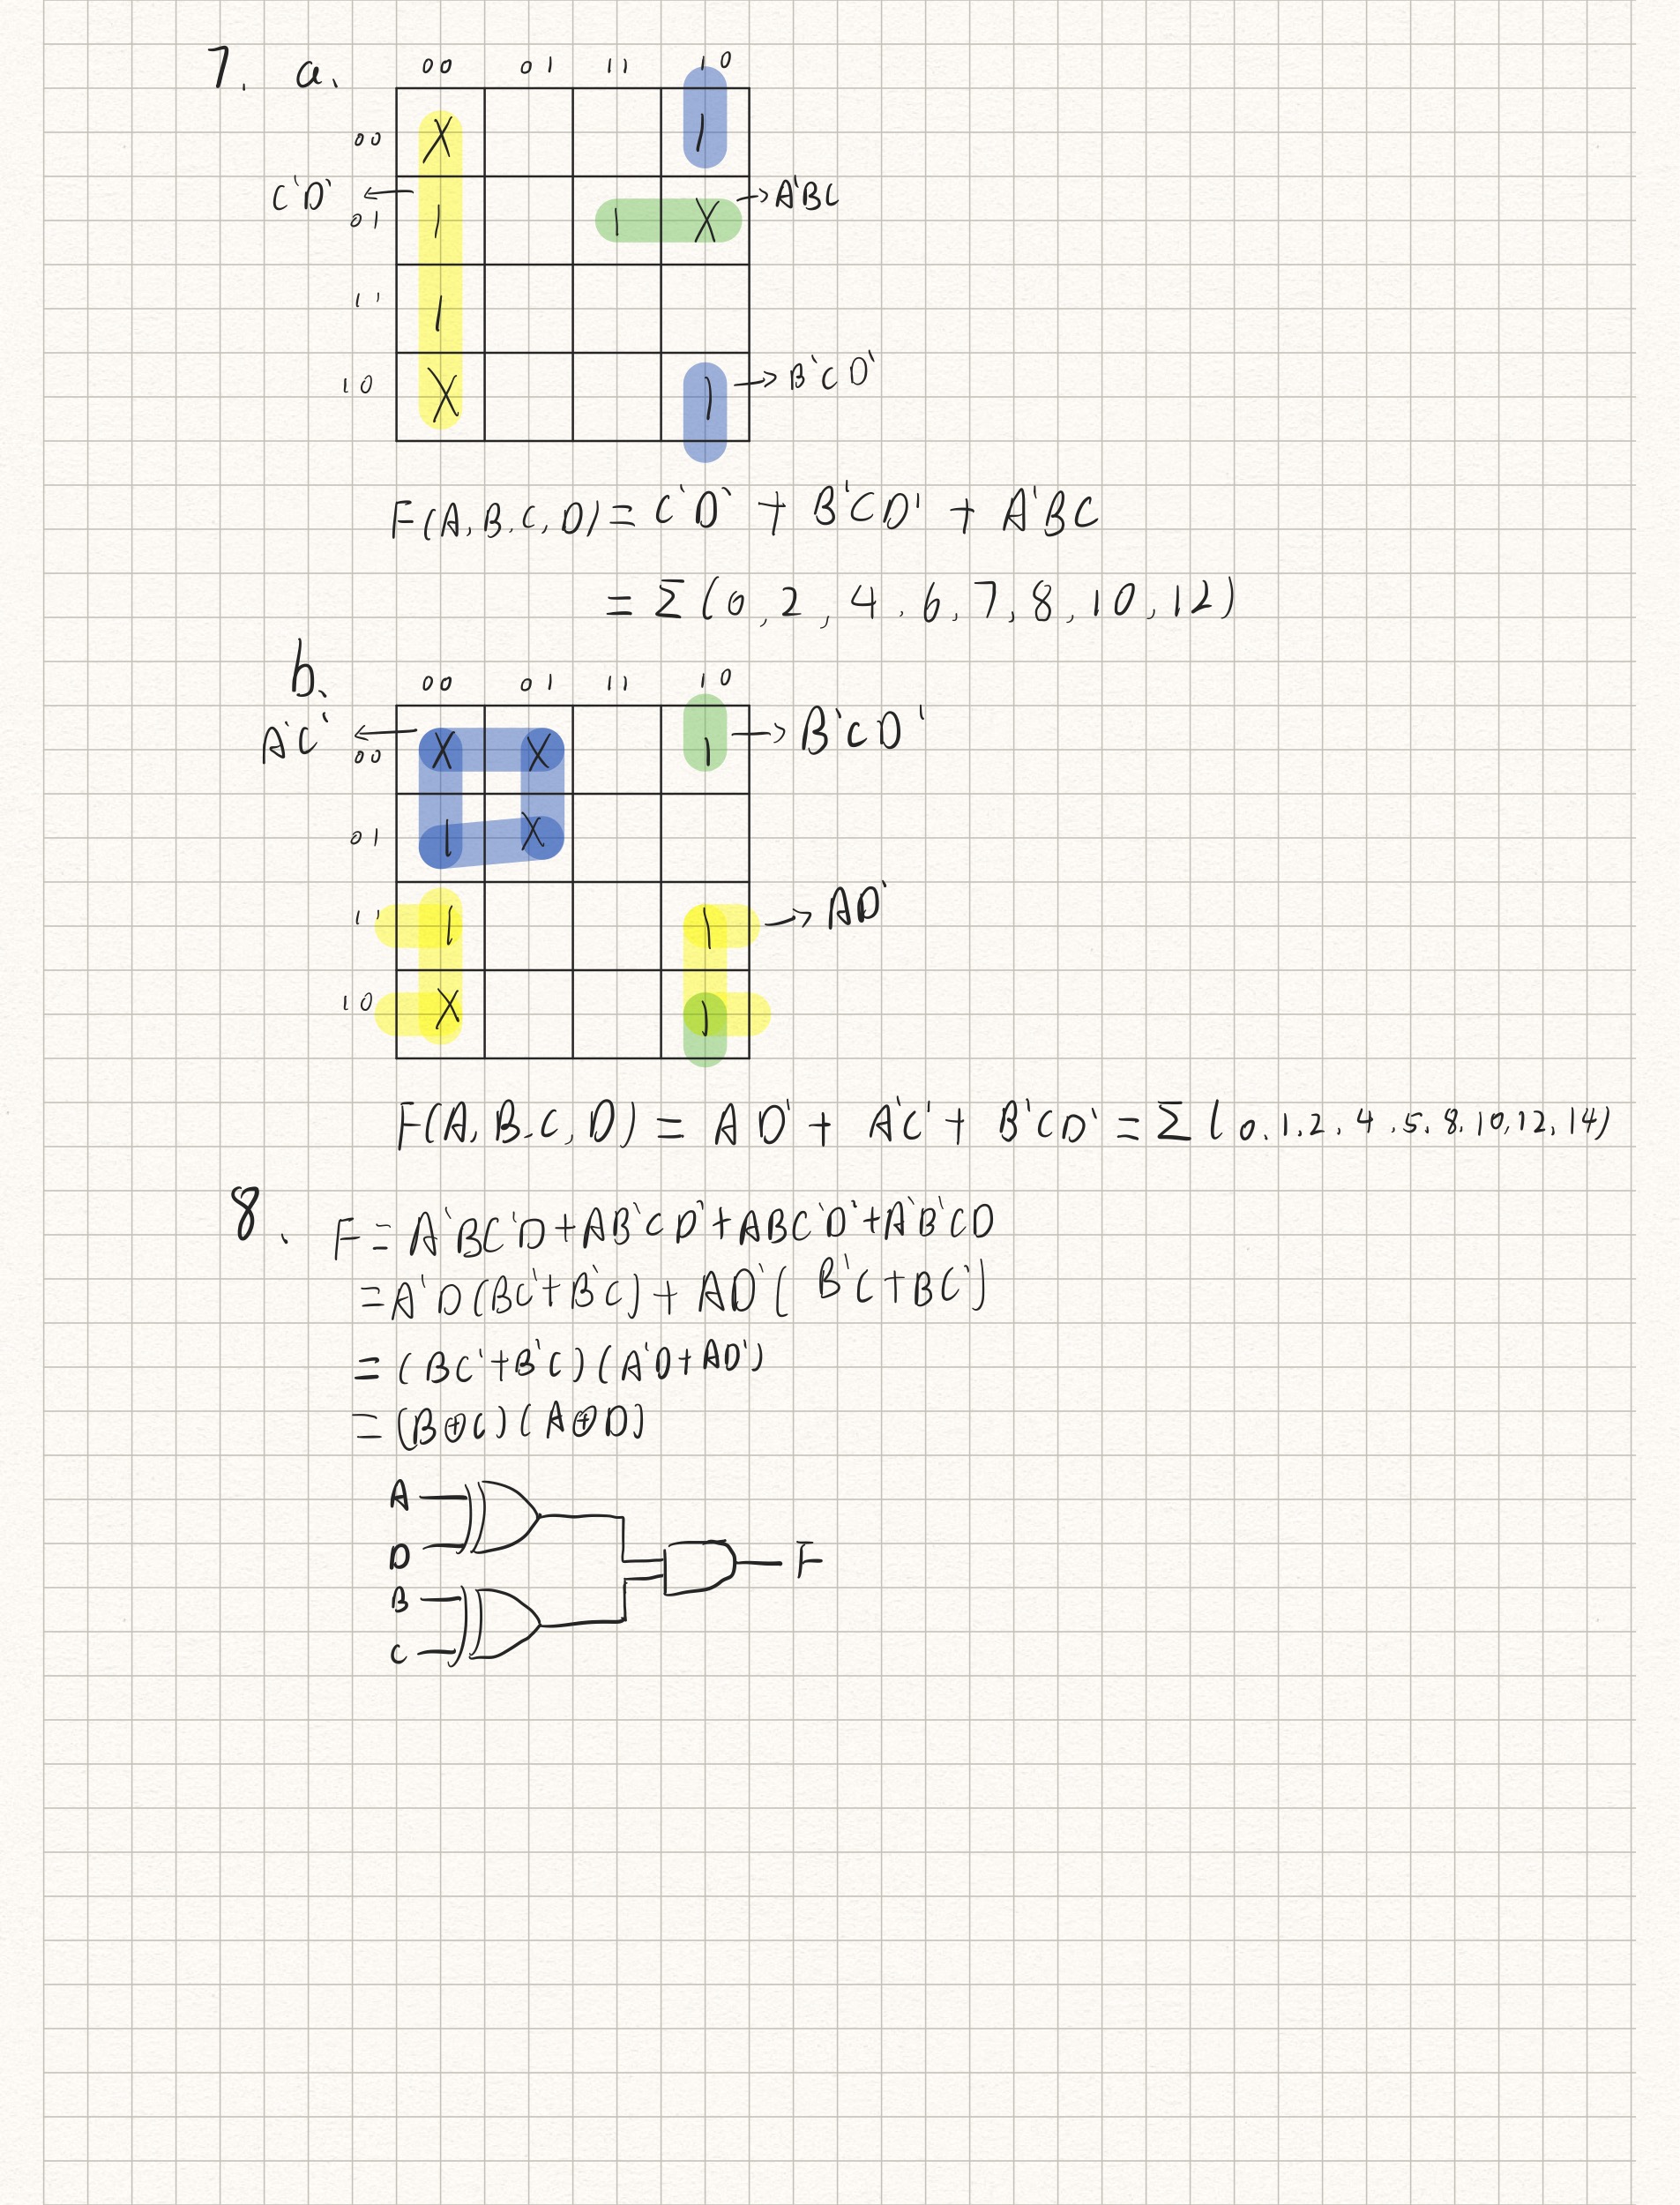 7. a.
00 01 11 10
00 X 1
C'D' A'BC
01 1 1 X
11 1
10 X 1 B'CD'
F(A,B,C,D) = C'D' + B'CD' + A'BC
= Σ(0,2,4,6,7,8,10,12)
b.
00 01 11 10
A'C' 00 X X 1 B'CD'
01 1 X
11 1 1 AD'
10 X 1
F(A,B,C,D) = AD' + A'C' + B'CD' = Σ(0,1,2,4,5,8,10,12,14)
8. F = A'BC'D + AB'CD' + ABC'D' + A'B'CD
= A'D(BC'+B'C) + AD'(B'C+BC')
= (BC'+B'C)(A'D+AD')
= (B⊕C)(A⊕D)
A
D
F
B
C